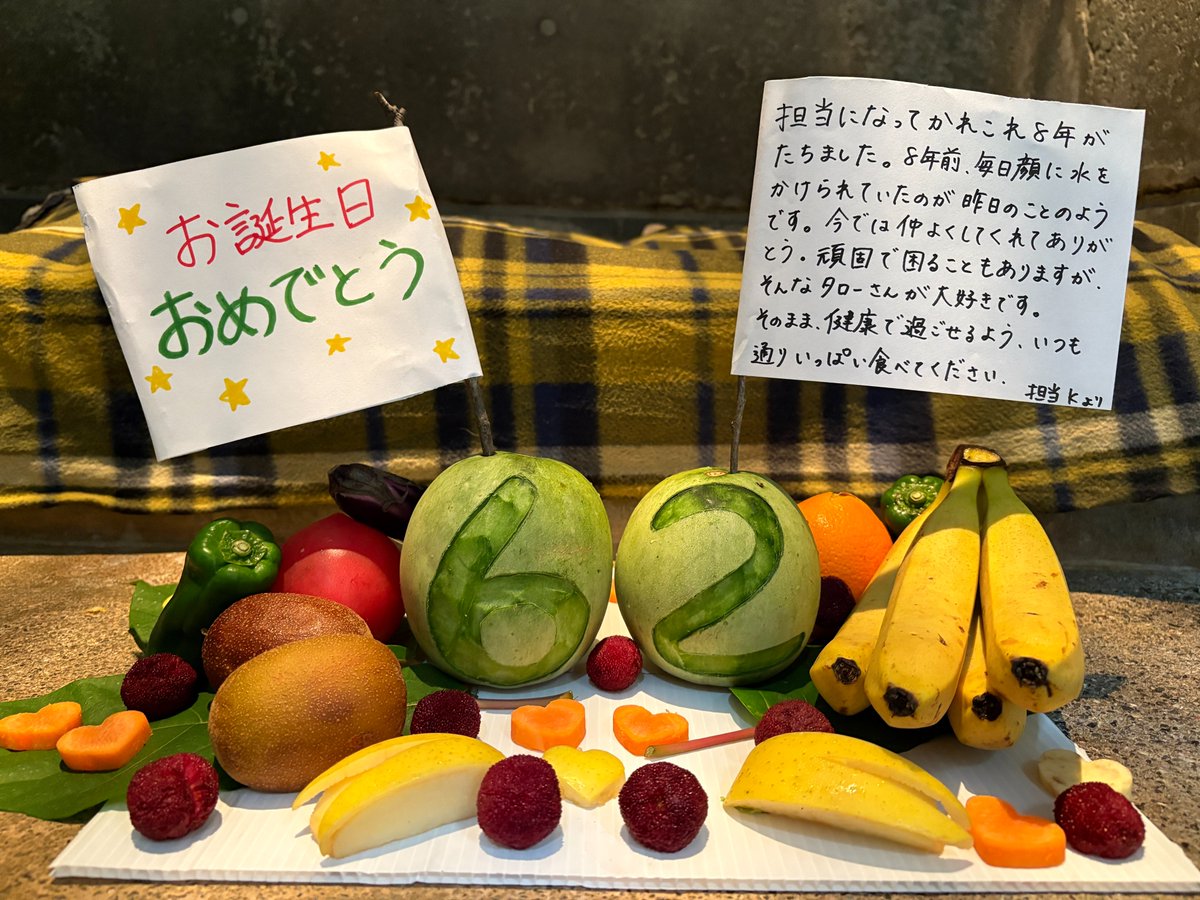 お誕生日
おめでとう
担当になってかれこれ8年が
たちました。8年前、毎日顔に水を
かけられていたのが昨日のことのよう
です。今では仲よくしてくれてありが
とう。頑固で困ることもありますが、
そんなタローさんが大好きです。
そのまま、健康で過ごせるよう、いつも
通りいっぱい食べてください。
担当Kより
62